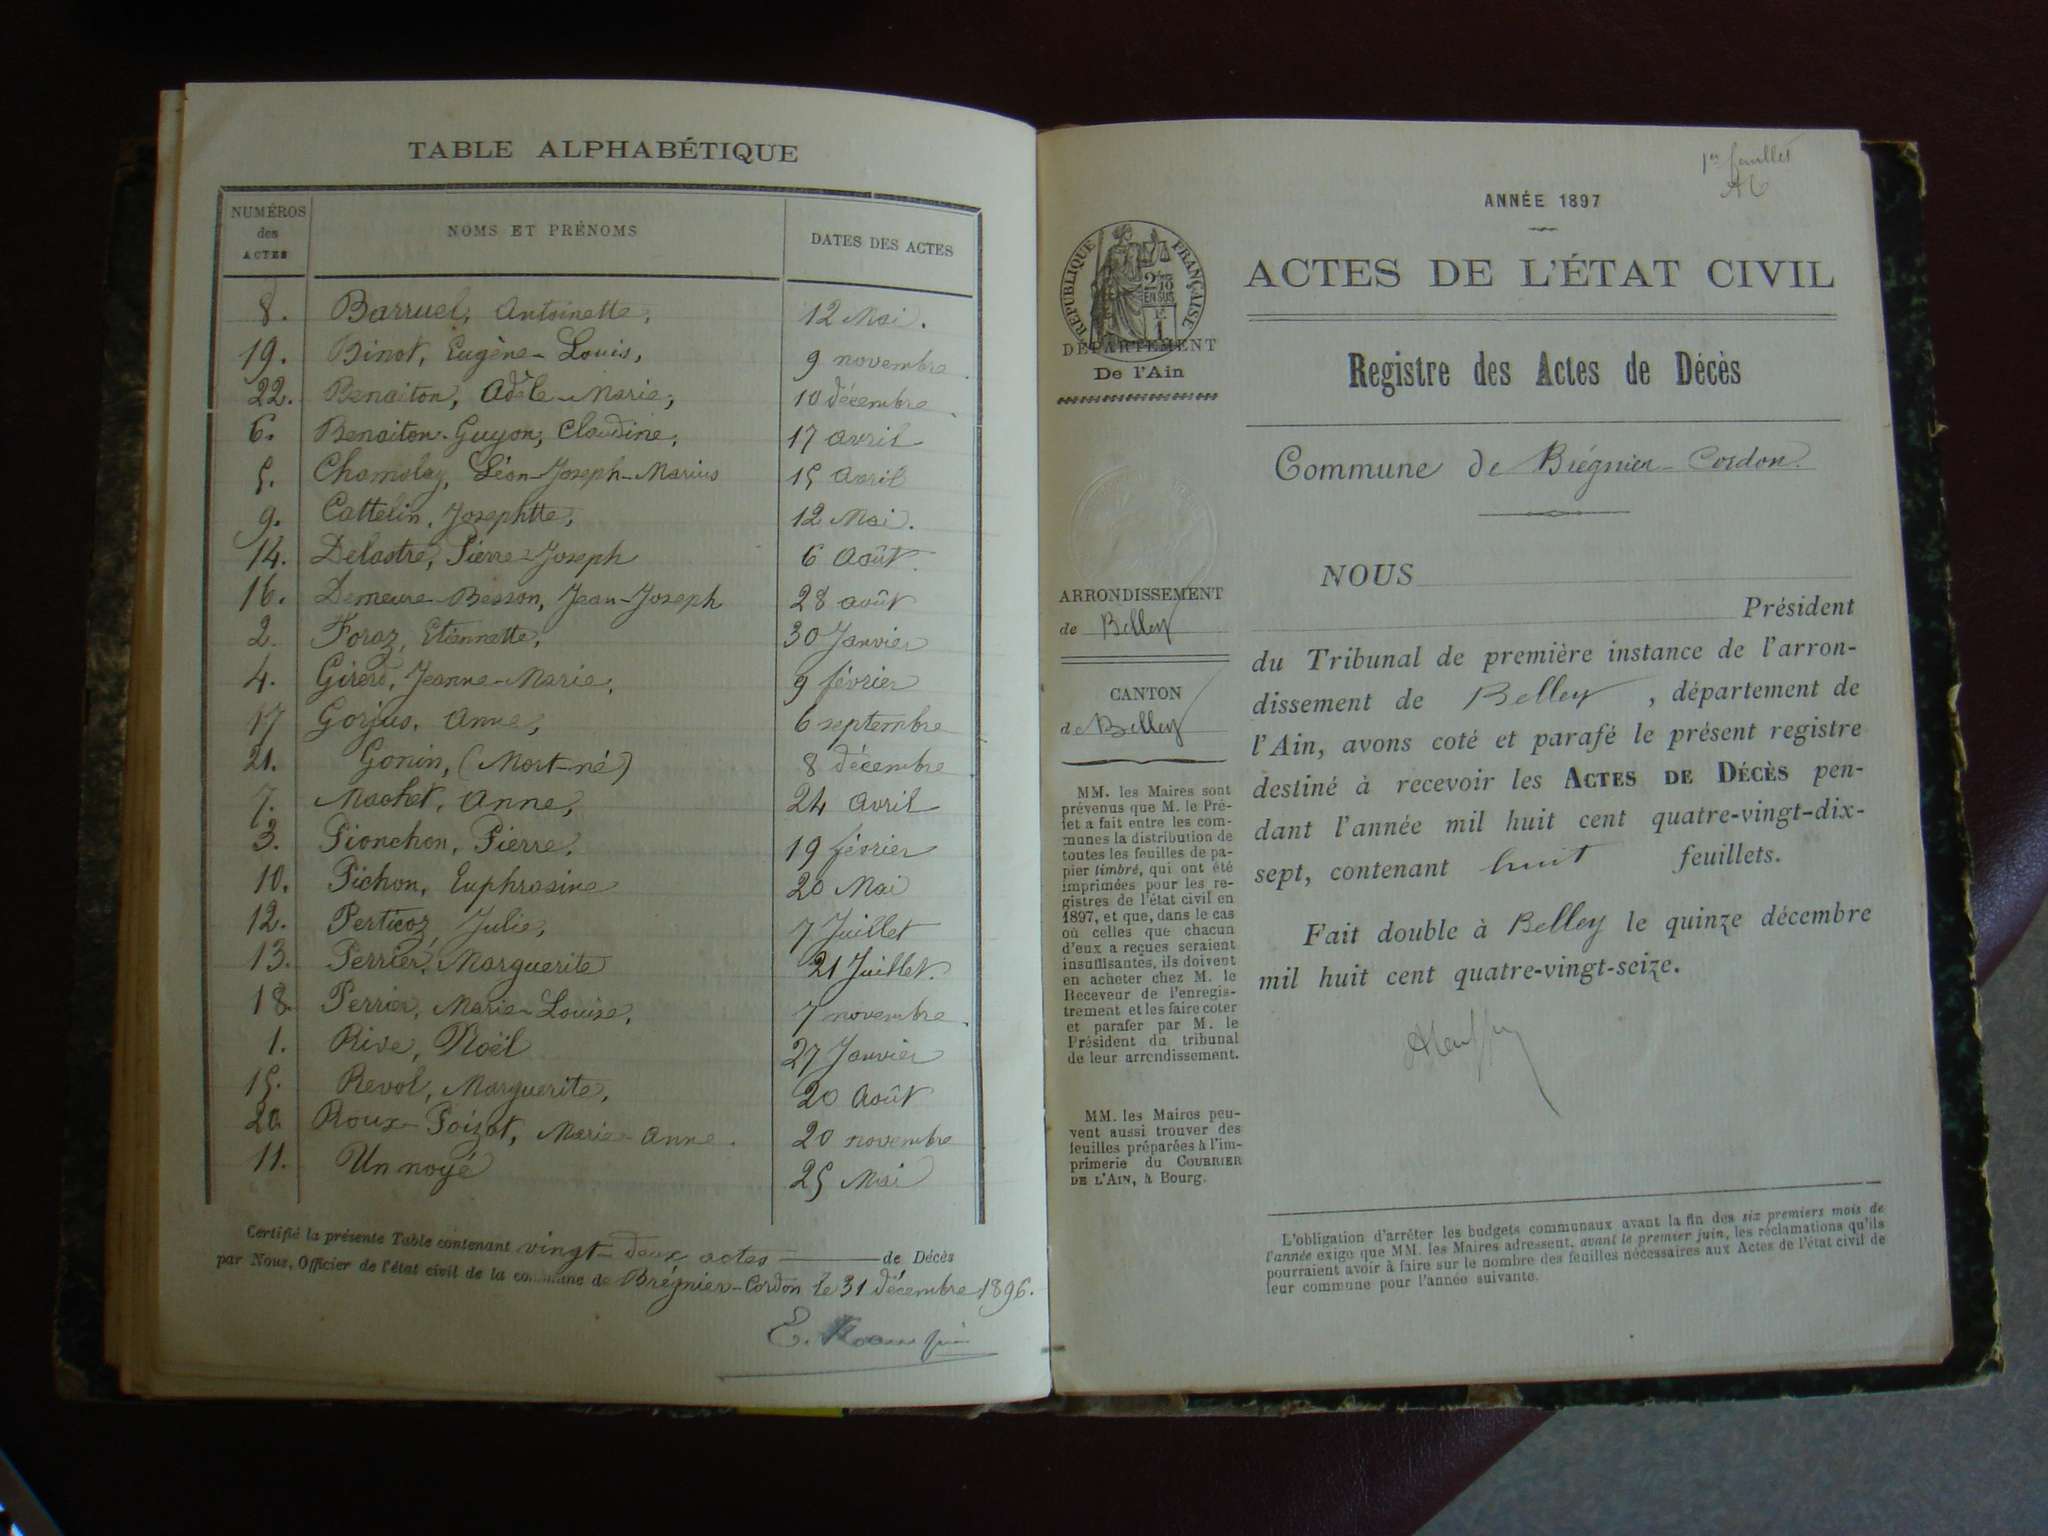 TABLE ALPHABÉTIQUE
NUMÉROS des ACTES
NOMS ET PRÉNOMS
DATES DES ACTES
8. Barruel, Antoinette, 12 Mai.
19. Binot, Eugène-Louis, 9 novembre
22. Benaiton, Adèle-Marie, 10 décembre
6. Benaiton-Guyon, Claudine, 17 avril
5. Chamolay, Léon-Joseph-Marius 15 Avril
9. Cattelin, Josephtte, 12 Mai.
14. Delastre, Pierre-Joseph 6 Août
16. Demeure-Besson, Jean-Joseph 28 août
2. Foraz, Etiennette, 30 Janvier
4. Girerd, Jeanne-Marie, 9 février
17 Gorjus, Anne, 6 septembre
21. Gonin, (Mort-né) 8 décembre
7. Machet, Anne, 24 Avril
3. Pionchon, Pierre, 19 février
10. Pichon, Euphrasine 20 Mai
12. Perticoz, Julie, 7 Juillet
13. Perrier, Marguerite 21 Juillet.
18. Perrier, Marie-Louise, 7 novembre.
1. Rive, Noël 27 Janvier
15. Revol, Marguerite, 20 Août
20 Roux-Poizat, Marie-Anne. 20 novembre
11. Un noyé 25 Mai
Certifié la présente Table contenant vingt-deux actes de Décès
par Nous, Officier de l'état civil de la commune de Brégnier-Cordon le 31 décembre 1896.
1er feuillet
ANNÉE 1897
ACTES DE L'ÉTAT CIVIL
Registre des Actes de Décès
Commune de Brégnier-Cordon.
RÉPUBLIQUE FRANÇAISE
2/10 EN SUS
DÉPARTEMENT
De l'Ain
ARRONDISSEMENT
de Belley
CANTON
de Belley
MM. les Maires sont
prévenus que M. le Pré-
fet a fait entre les com-
munes la distribution de
toutes les feuilles de pa-
pier timbré, qui ont été
imprimées pour les re-
gistres de l'état civil en
1897, et que, dans le cas
où celles que chacun
d'eux a reçues seraient
insuffisantes, ils doivent
en acheter chez M. le
Receveur de l'enregis-
trement et les faire coter
et parafer par M. le
Président du tribunal
de leur arrondissement.
MM. les Maires peu-
vent aussi trouver des
feuilles préparées à l'im-
primerie du COURRIER
DE L'AIN, à Bourg.
NOUS
Président
du Tribunal de première instance de l'arron-
dissement de Belley, département de
l'Ain, avons coté et parafé le présent registre
destiné à recevoir les ACTES DE DÉCÈS pen-
dant l'année mil huit cent quatre-vingt-dix-
sept, contenant huit feuillets.
Fait double à Belley le quinze décembre
mil huit cent quatre-vingt-seize.
L'obligation d'arrêter les budgets communaux avant la fin des six premiers mois de
l'année exige que MM. les Maires adressent, avant le premier juin, les réclamations qu'ils
pourraient avoir à faire sur le nombre des feuilles nécessaires aux Actes de l'état civil de
leur commune pour l'année suivante.